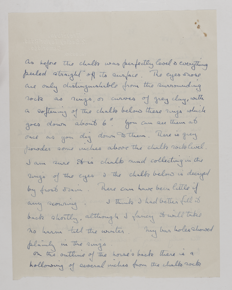 As before the chalk was perfectly level & everything
peeled straight off its surface. The eyes & nose
are only distinguishable from the surrounding
rock as rings, or curves of grey clay, with
a softening of the chalk below these rings which
goes down about 6". You can see them at
once as you dig down to them. There is grey
powder some inches above the chalk rock level.
I am sure it is chalk mud collecting in the
rings of the eyes & the chalk below is damped
by fresh rain. There can have been little of
any scouring. I think I had better fill it
back shortly, although I fancy it will take
no harm till the winter. My bar holes showed
plainly in the rings
On the outline of the horse's back there is a
hollowing of several inches from the chalk rock